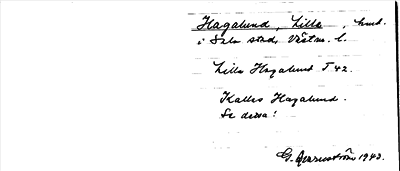 Hagalund, Lilla, hmd.
i Sala stad, Västm. l.
Lilla Hagalund T 42.
Kallas Hagalund.
Se dessa!
G. 1943.